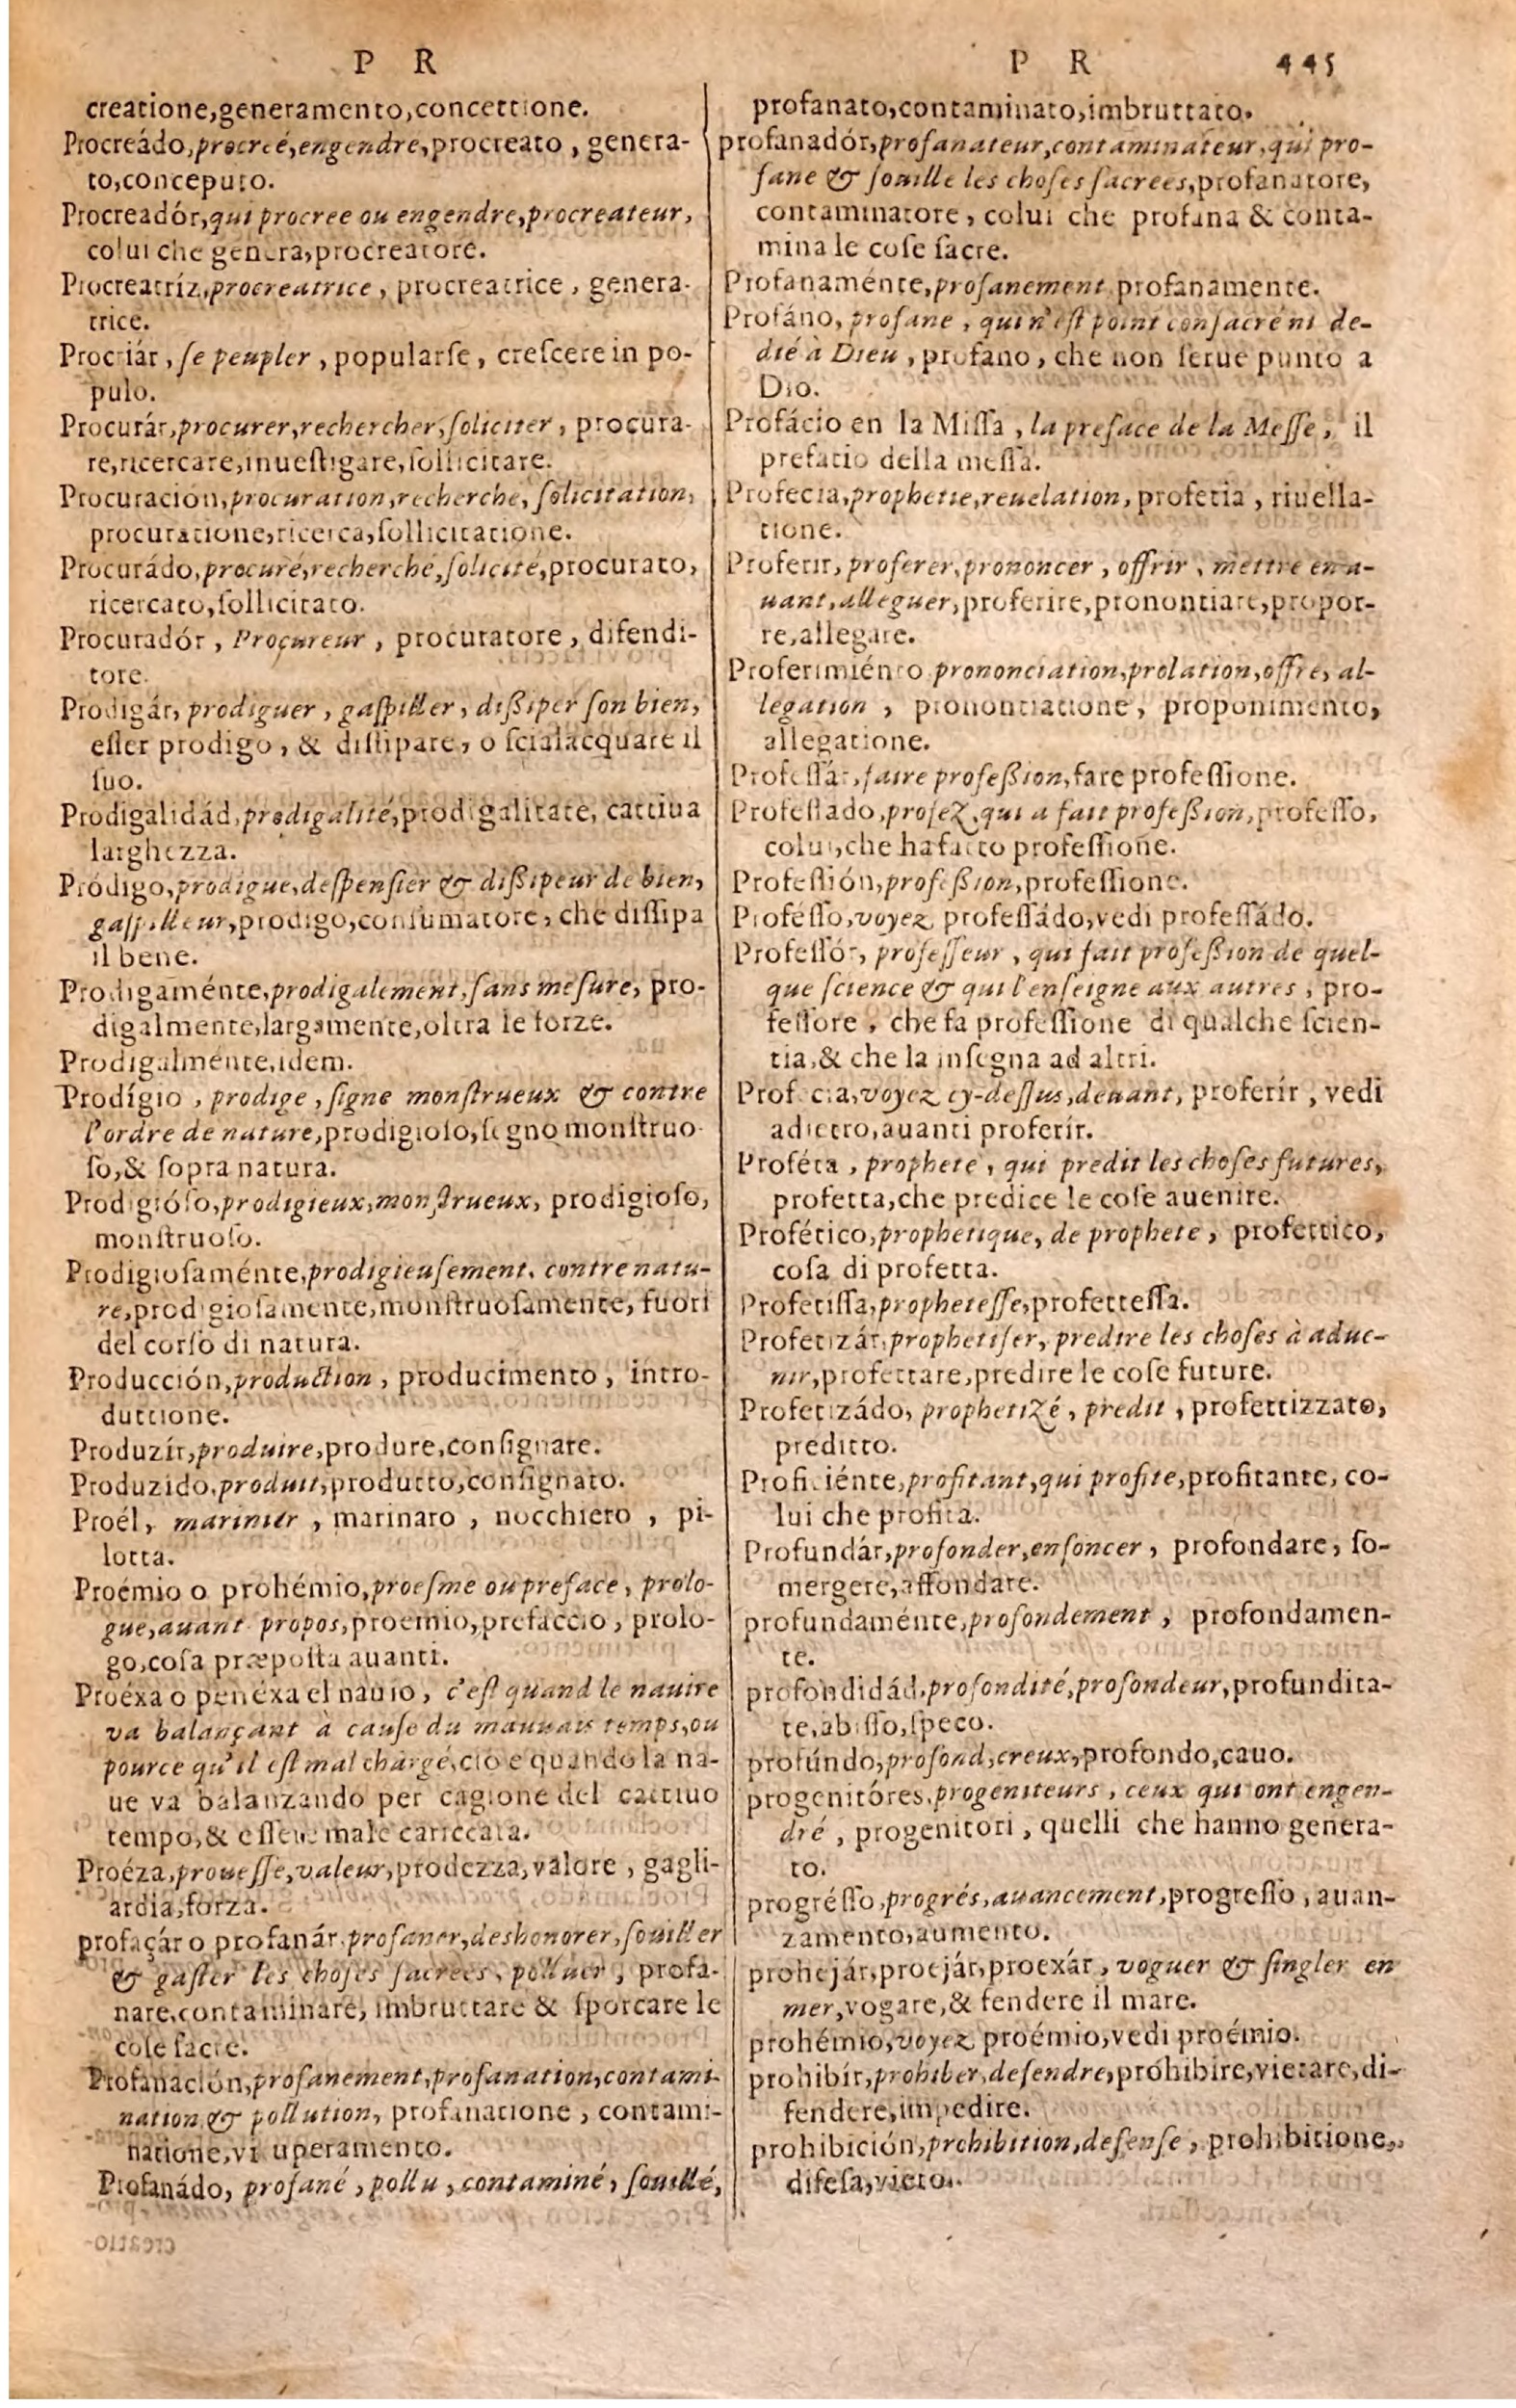 P R
creatione,generamento,concettione.
Procreádo,procreé,engendre,procreato , genera-
to,conceputo.
Procreadór,qui procree ou engendre,procreateur,
colui che genera,procreatore.
Procreatríz,procreatrice , procreatrice , genera-
trice.
Procriár , ſe peupler , popularſe , creſcere in po-
pulo.
Procurár,procurer,rechercher,ſoliciter , procura-
re,ricercare,inueſtigare,ſollicitare.
Procuración,procuration,recherche,ſolicitation,
procuratione,ricerca,ſollicitatione.
Procurádo,procuré,recherché,ſolicité,procurato,
ricercato,ſollicitato.
Procuradór , Procureur , procuratore , difendi-
tore.
Prodigár, prodiguer , gaſpiller , dißiper ſon bien,
eſſer prodigo , & diſſipare , o ſcialacquare il
ſuo.
Prodigalidád,prodigalité,prodigalitate, cattiua
larghezza.
Pródigo,prodigue,deſpenſier & dißipeur de bien,
gaſpilleur,prodigo,conſumatore, che diſſipa
il bene.
Prodigaménte,prodigalement,ſans meſure, pro-
digalmente,largamente,oltra le forze.
Prodigalménte,idem.
Prodígio , prodige , ſigne monſtrueux & contre
l'ordre de nature,prodigioſo,ſegno monſtruo-
ſo,& ſopra natura.
Prodigióſo,prodigieux,monſtrueux, prodigioſo,
monſtruoſo.
Prodigioſaménte,prodigieuſement, contre natu-
re,prodigioſamente,monſtruoſamente, fuori
del corſo di natura.
Producción,production , producimento , intro-
duttione.
Produzír,produire,produre,conſignare.
Produzido,produit,produtto,conſignato.
Proél, marinier , marinaro , nocchiero , pi-
lotta.
Proémio o prohémio,proeſme ou preface, prolo-
gue,auant propos,proemio,prefaccio , prolo-
go,coſa præpoſta auanti.
Proéxa o penéxa el nauío , c'eſt quand le nauire
va balançant à cauſe du mauuais temps,ou
pource qu'il eſt mal chargé,cio e quando la na-
ue va balanzando per cagione del cattiuo
tempo,& eſſere male cariccata.
Proéza,proueſſe,valeur,prodezza,valore , gagli-
ardia,forza.
profaçár o profanár,profaner,deshonorer,ſouiller
& gaſter les choſes ſacrees, polluer , profa-
nare,contaminare, imbruttare & ſporcare le
coſe ſacre.
Profanación,profanement,profanation,contami-
nation & pollution, profanatione , contami-
natione,vi uperamento.
Profanádo, profané , pollu , contaminé , ſouillé,
P R 445
profanato,contaminato,imbruttato.
profanadór,profanateur,contaminateur,qui pro-
fane & ſouille les choſes ſacrees,profanatore,
contaminatore , colui che profana & conta-
mina le coſe ſacre.
Profanaménte,profanement,profanamente.
Profáno, profane , qui n'eſt point conſacré ni de-
dié à Dieu , profano , che non ſerue punto a
Dio.
Profácio en la Miſſa , la preface de la Meſſe, il
prefatio della meſſa.
Profecia,prophetie,reuelation, profetia , riuella-
tione.
Proferir, proferer,prononcer , offrir , mettre en a-
uant,alleguer,proferire,pronontiare,propor-
re,allegare.
Proferimiénto prononciation,prolation,offre, al-
legation , pronontiatione , proponimento,
allegatione.
Profeſſár,faire profeßion,fare profeſſione.
Profeſſado,profez,qui a fait profeßion,profeſſo,
colui,che ha fatto profeſſione.
Profeſſión,profeßion,profeſſione.
Proféſſo,voyez profeſſádo,vedi profeſſádo.
Profeſſór, profeſſeur , qui fait profeßion de quel-
que ſcience & qui l'enſeigne aux autres , pro-
feſſore , che fa profeſſione di qualche ſcien-
tia,& che la inſegna ad altri.
Profecia,voyez cy-deſſus,deuant, proferír , vedi
adietro,auanti proferír.
Proféta , prophete , qui predit les choſes futures,
profetta,che predice le coſe auenire.
Profético,prophetique, de prophete , profettico,
coſa di profetta.
Profetiſſa,propheteſſe,profetteſſa.
Profetizár,prophetiſer, predire les choſes à adue-
nir,profettare,predire le coſe future.
Profetizádo, prophetizé , predit , profettizzato,
preditto.
Proficiénte,profitant,qui profite,profitante, co-
lui che profita.
Profundár,profonder,enfoncer , profondare , ſo-
mergere,affondare.
profundaménte,profondement , profondamen-
te.
profondidád,profondité,profondeur,profundita-
te,abiſſo,ſpeco.
profúndo,profond,creux,profondo,cauo.
progenitóres,progeniteurs , ceux qui ont engen-
dré , progenitori , quelli che hanno genera-
to.
progréſſo,progrés,auancement,progreſſo , auan-
zamento,aumento.
prohejár,proejár,proexár , voguer & ſingler en
mer,vogare,& fendere il mare.
prohémio,voyez proémio,vedi proémio.
prohibír,prohiber,defendre,próhibire,vietare,di-
fendere,impedire.
prohibición,prohibition,defenſe , prohibitione,
difeſa,vieto.